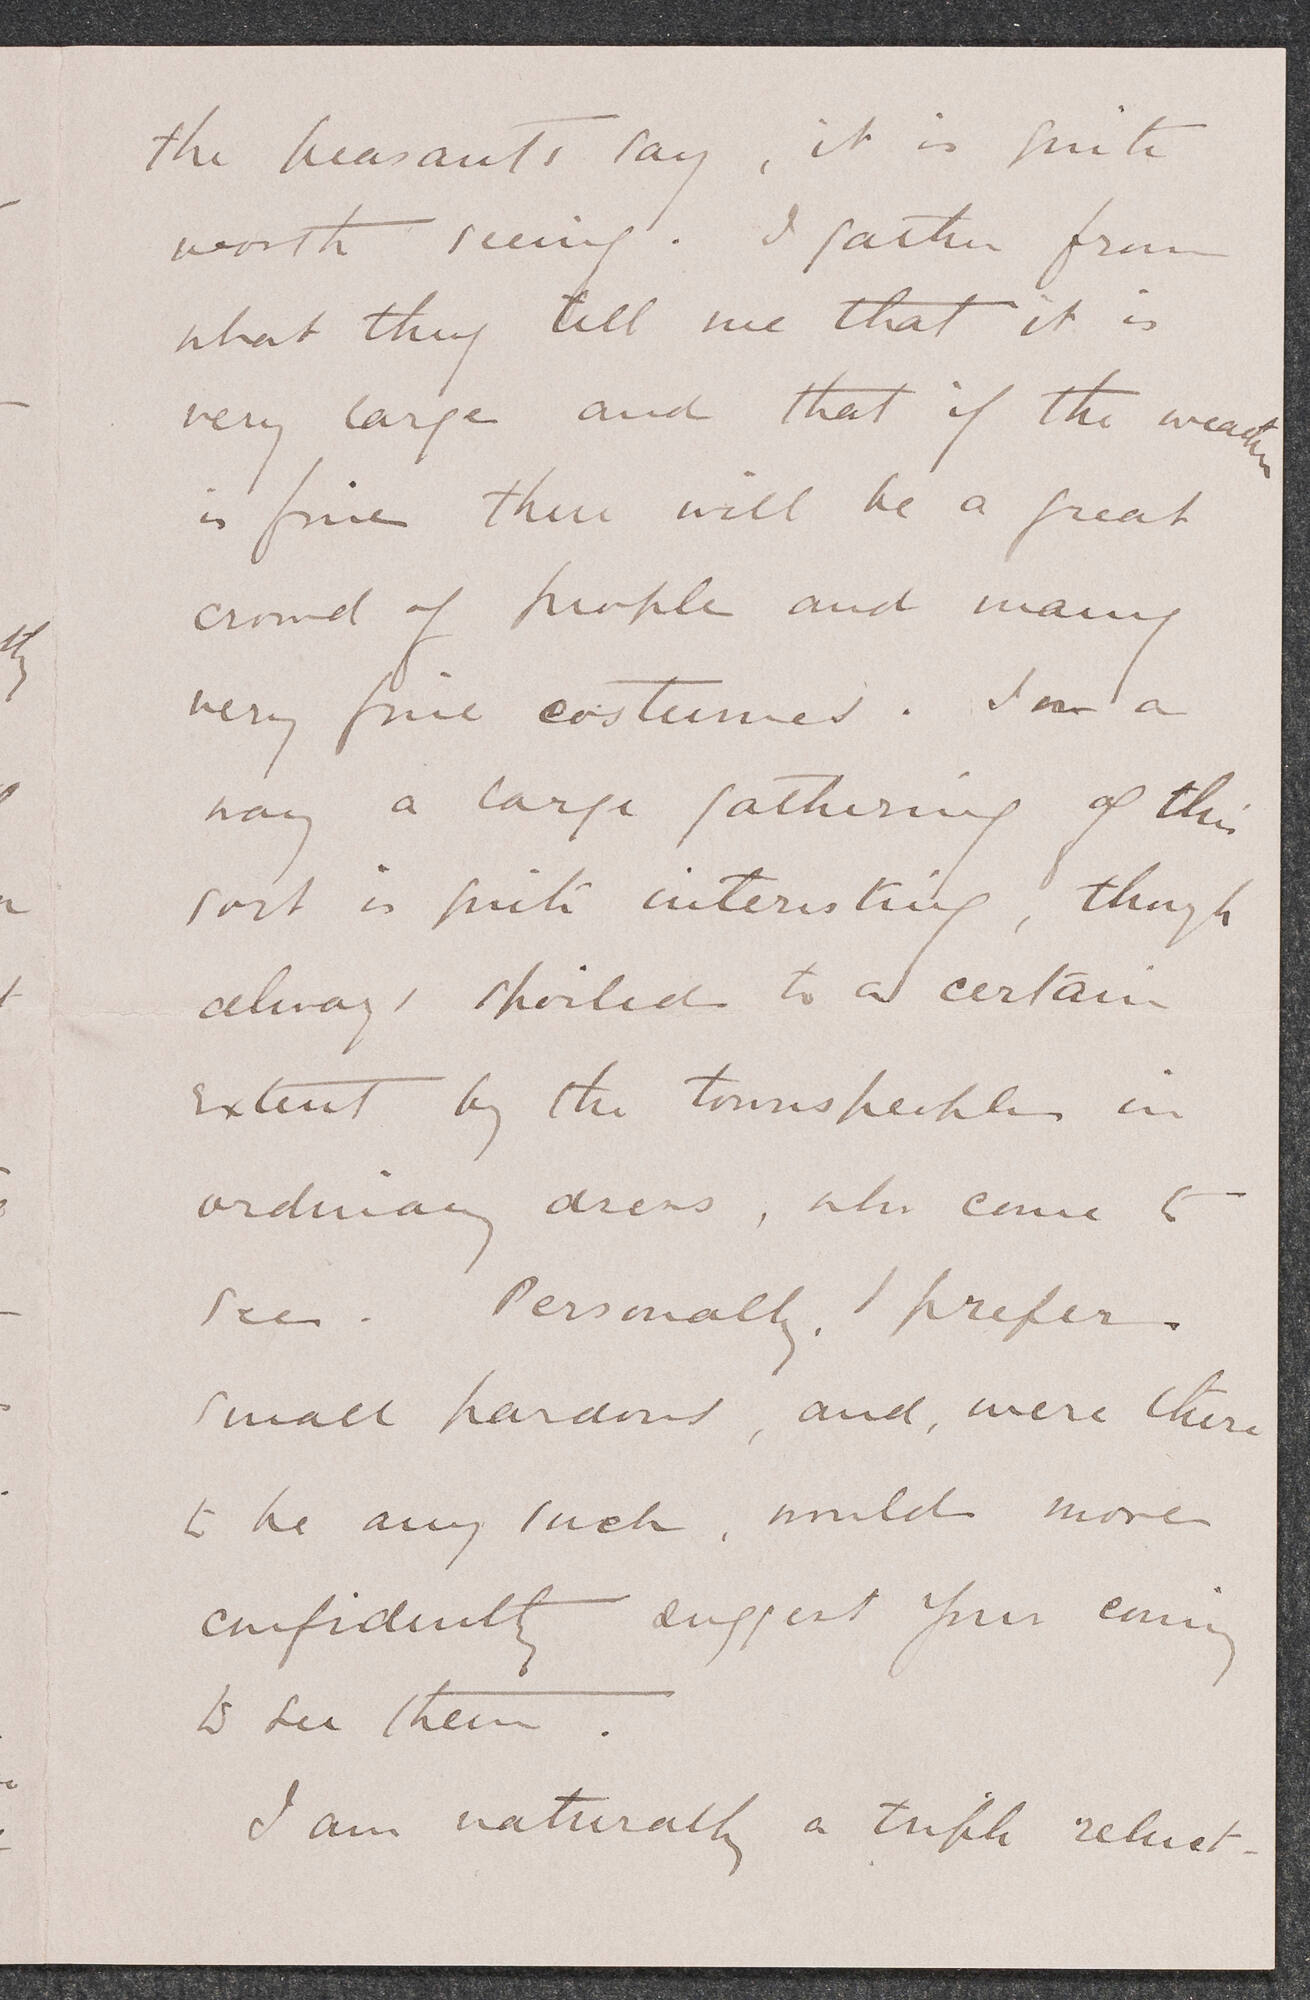 the peasants say, it is quite
worth seeing. I gather from
what they tell me that it is
very large and that if the weather
is fine there will be a great
crowd of people and many
very fine costumes. In a
way a large gathering of this
sort is quite interesting, though
always spoiled to a certain
extent by the townspeople in
ordinary dress, who come to
see. Personally, I prefer
small pardons, and, were there
to be any such, would more
confidently suggest your coming
to see them.
I am naturally a trifle reluct-